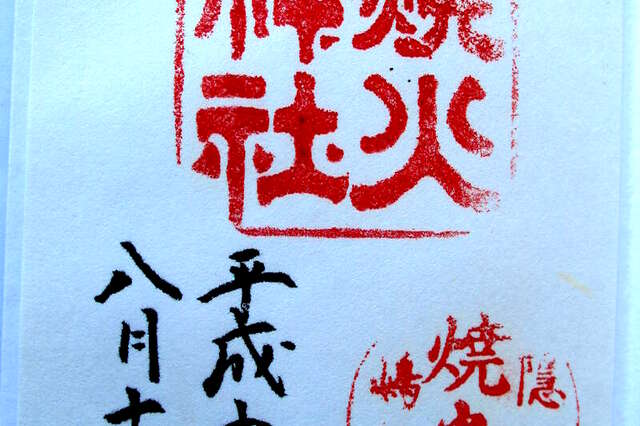 焼火
神社
平成
八月十
隠
焼
嶋